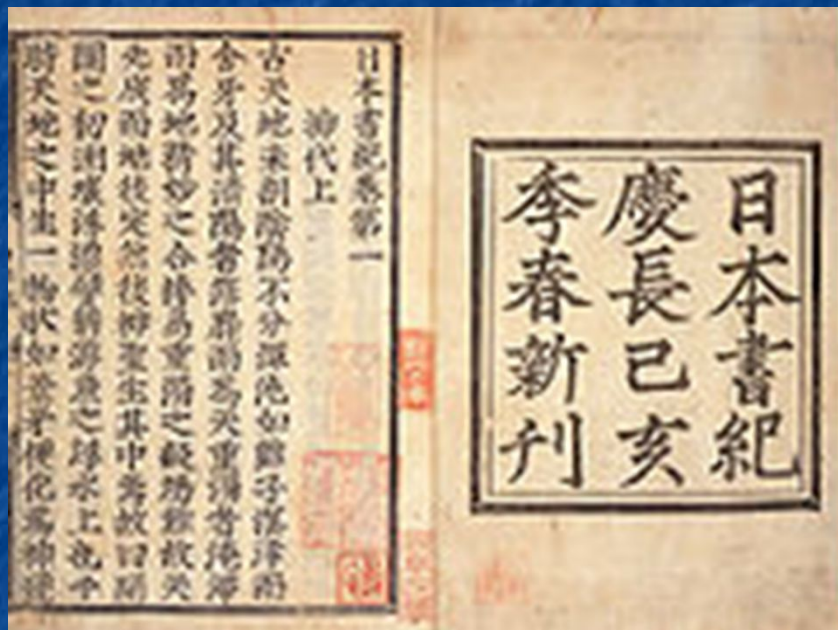 日本書紀
慶長己亥
季春新刊
日本書紀卷第一
神代上
古天地未剖陰陽不分渾沌如鷄子溟涬而
含牙及其清陽者薄靡而爲天重濁者淹滯
而爲地精妙之合搏易重濁之凝竭難故天
先成而地後定然後神聖生其中焉故曰開
闢之初洲壤浮漂譬猶游魚之浮水上也于
時天地之中生一物狀如葦牙便化爲神號